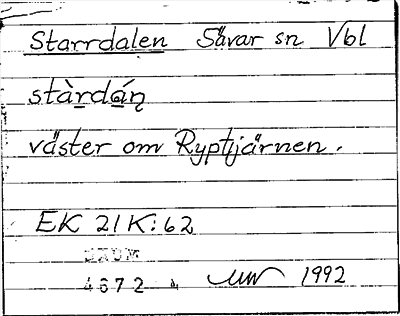 Starrdalen Sävar sn Vbl
stàrdán̥
väster om Ryptjärnen.
EK 21K:62
DAUM
4672 4 1992